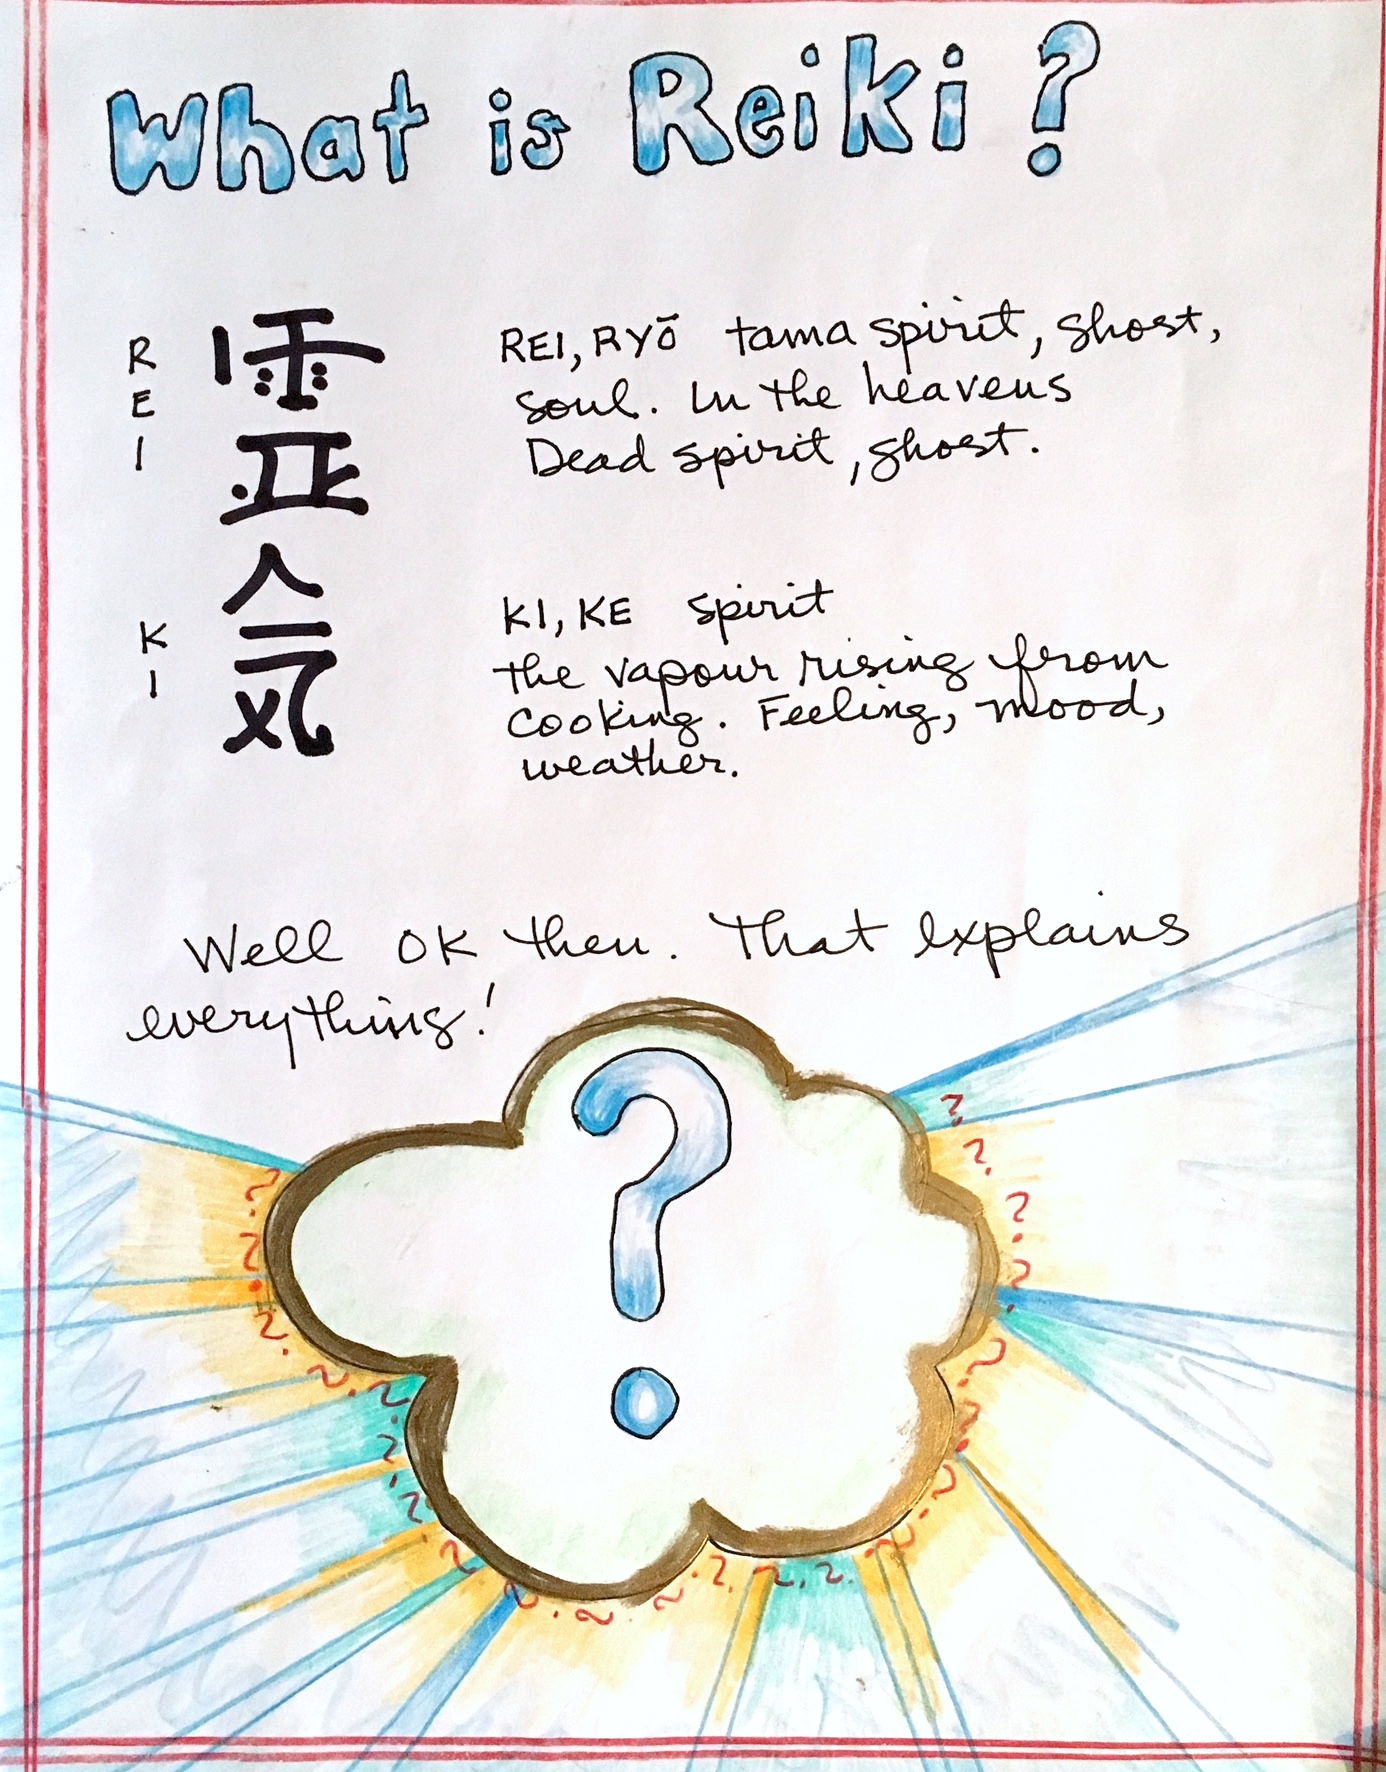 What is Reiki?
REI
霊
REI, RYŌ tama spirit, ghost,
soul. In the heavens
Dead spirit, ghost.
KI
気
KI, KE spirit
the vapour rising from
cooking. Feeling, mood,
weather.
Well OK then. That explains
everything!
?
? ? ? ? ? ? ? ? ? ? ? ? ? ? ? ? ? ? ? ? ? ? ?